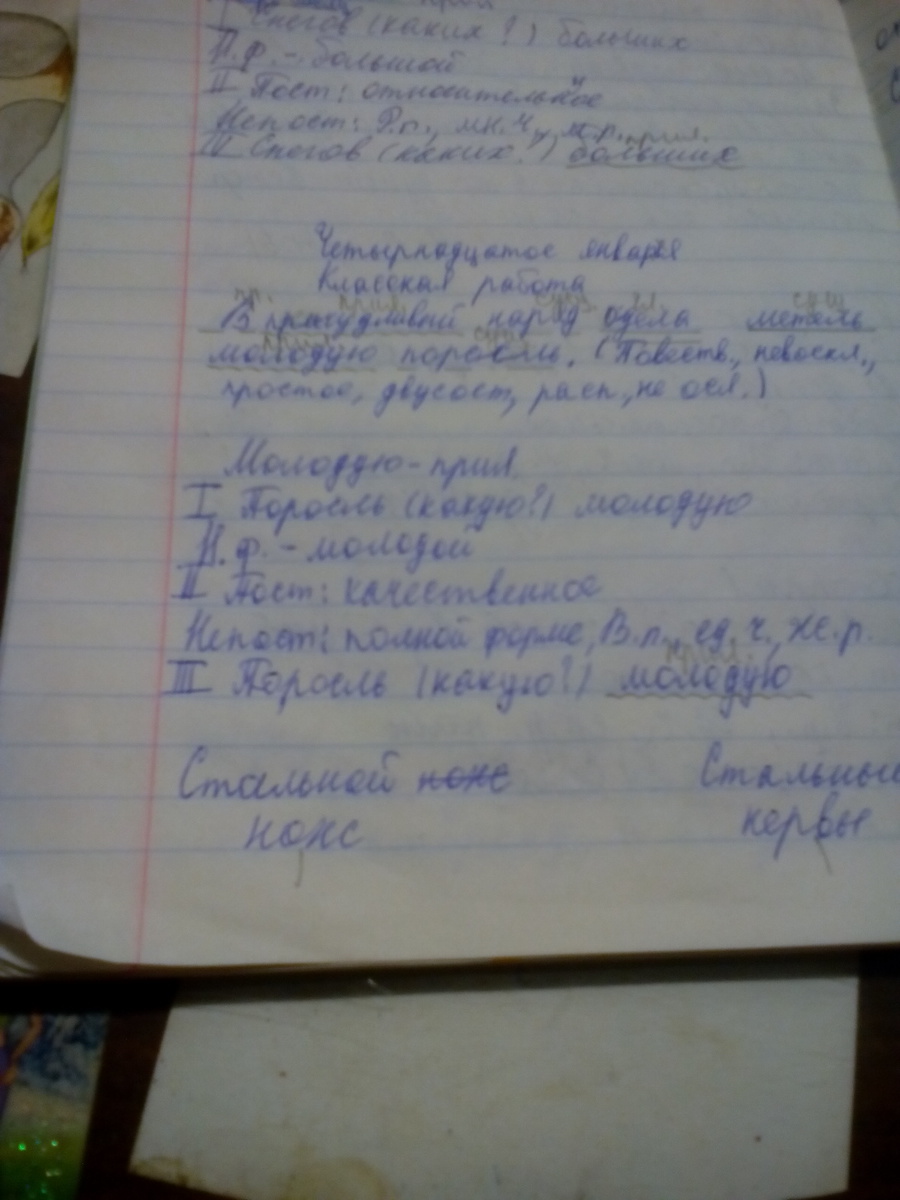 I Снегов (каких?) больших
Н.ф. - большой
II Пост: относительное
Непост: Р.п., мн.ч.,
прил.
III Снегов (каких?) больших
Четырнадцатое января
Классная работа
пр. прил. сущ. гл. сущ.
В причудливый наряд одела метель
прил. сущ.
молодую поросль. (Повеств., невоскл.,
простое, двусост, расп., не осл.)
Молодую - прил.
I Поросль (какую?) молодую
Н.ф. - молодой
II Пост: качественное
Непост: полной форме, В.п., ед.ч., ж.р.
прил.
III Поросль (какую?) молодую
Стальной нож Стальные
нож нервы